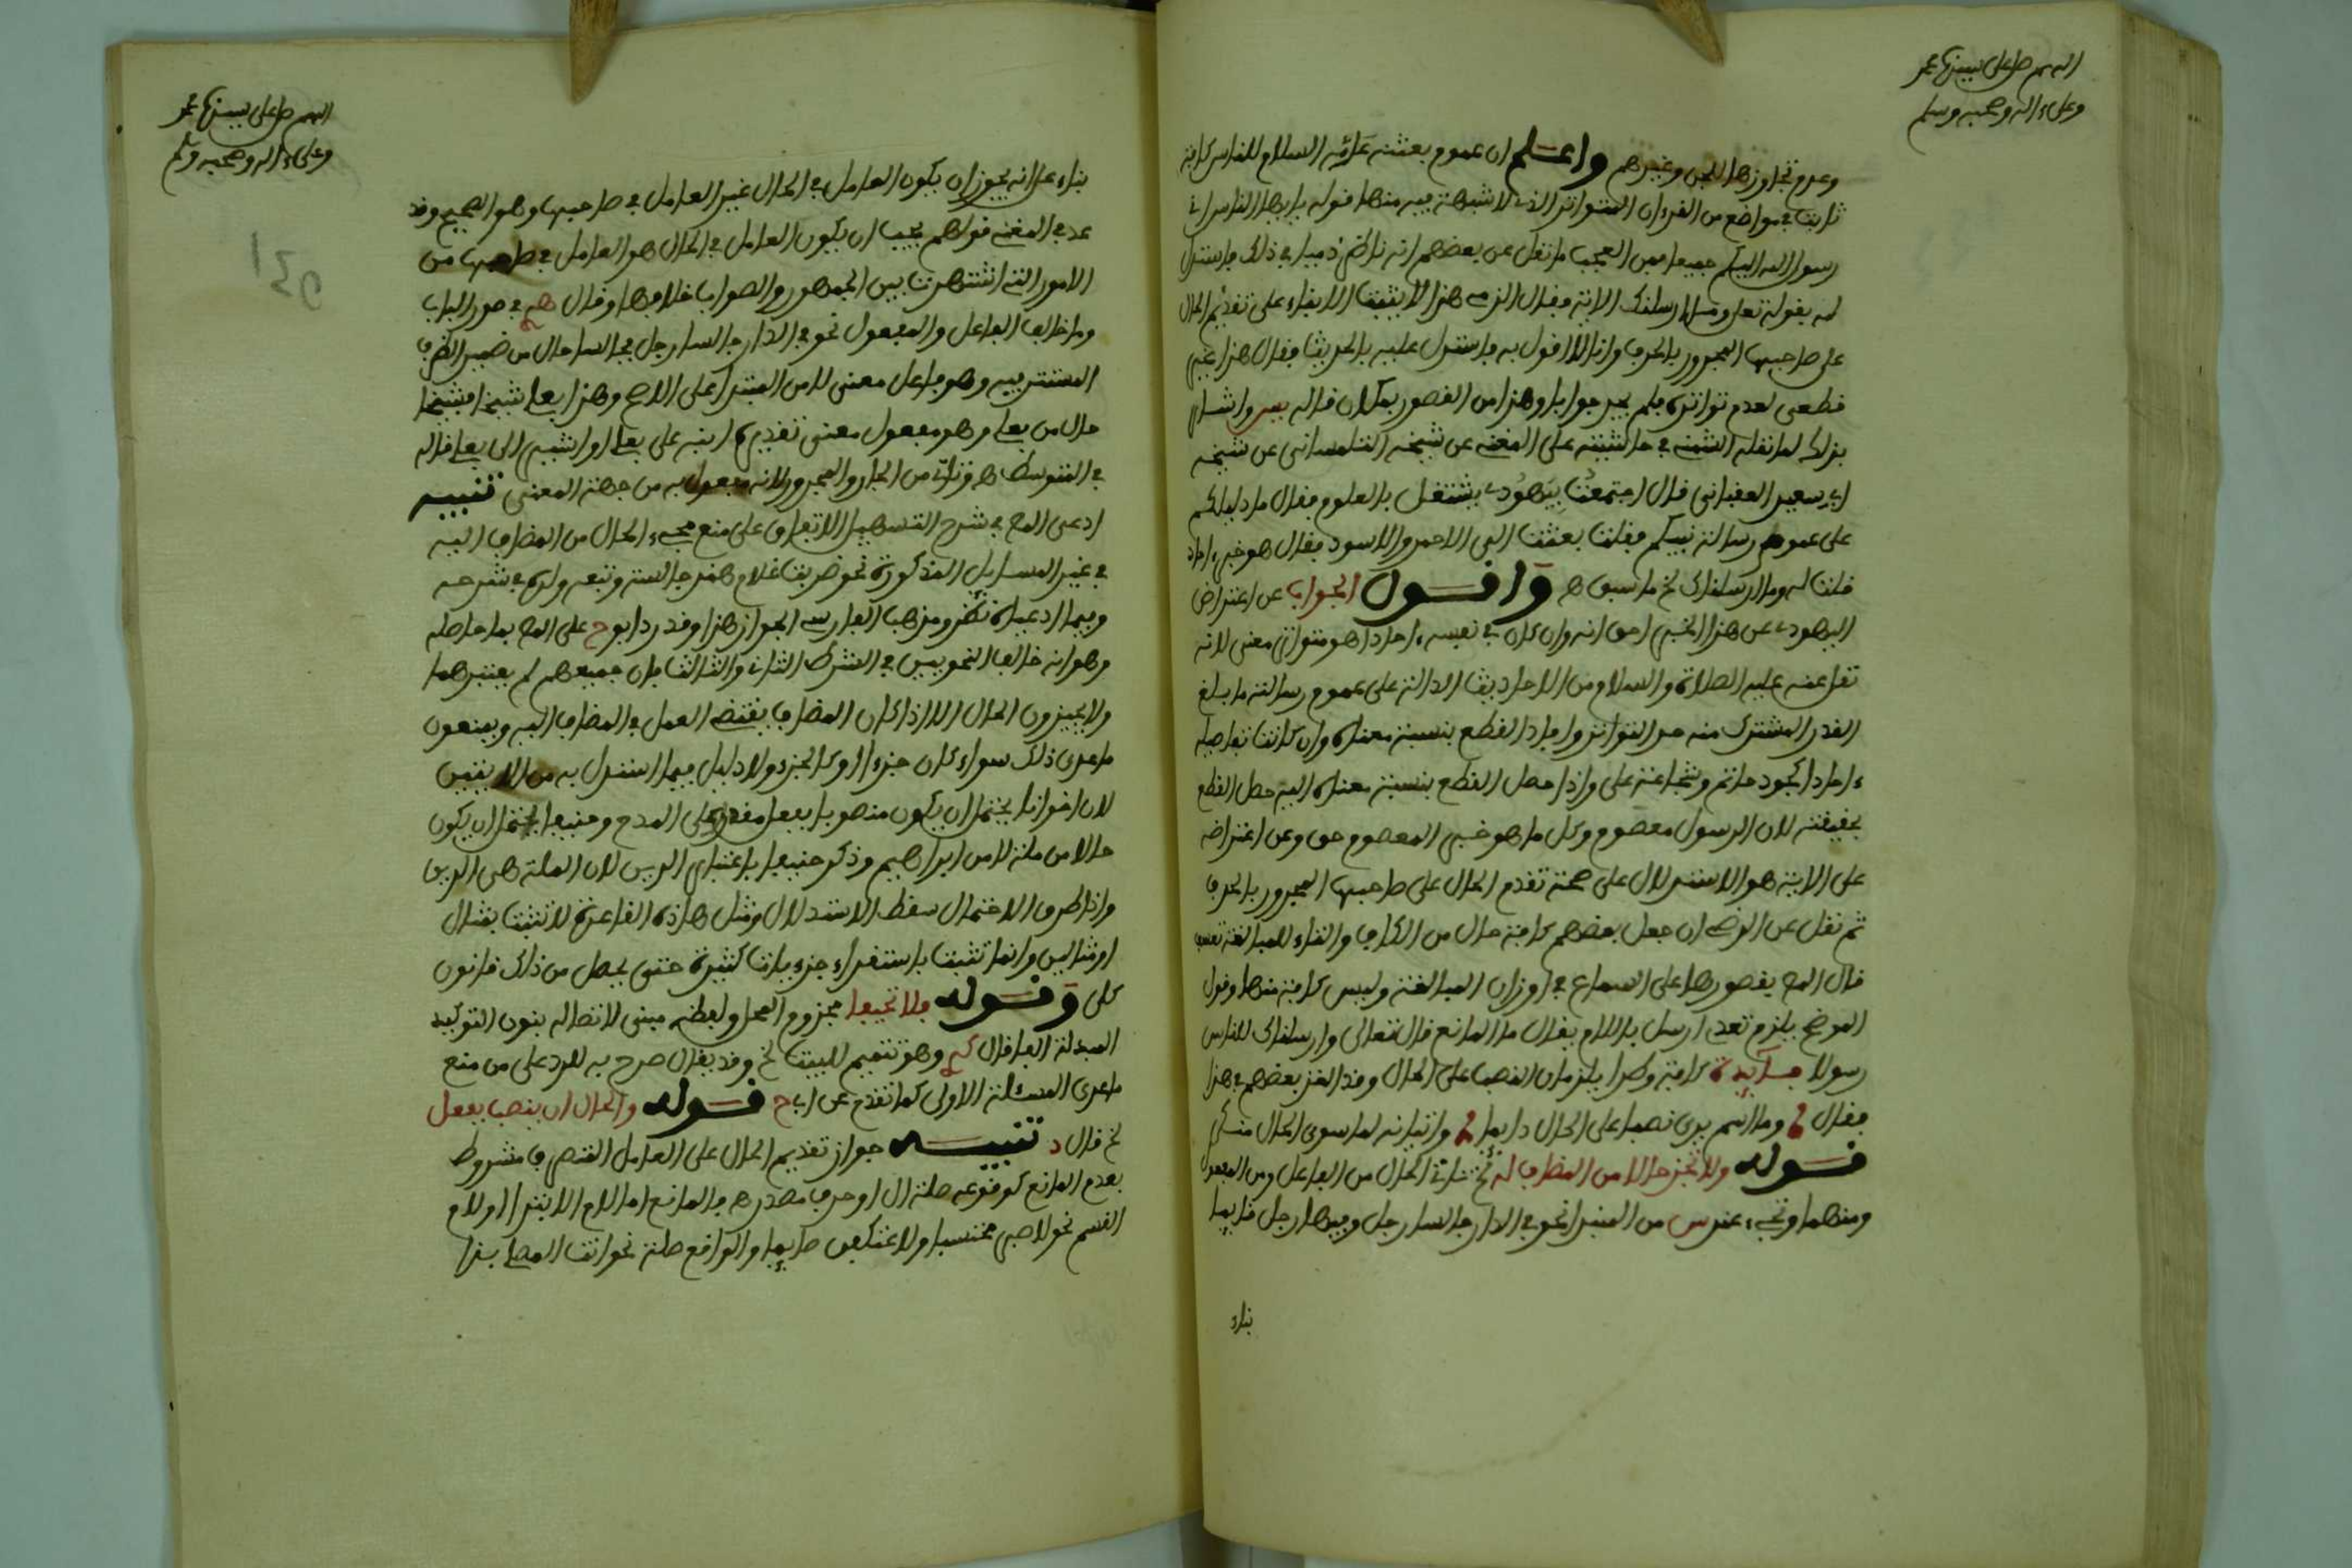 اللهم صل على سيدنا محمد
وعلى ءاله وصحبه وسلم
وعدم تجاوزها للجن وغيرهم واعلم ان عموم بعثته عليه السلام للناس كافة
ثابت في مواضع من القرءان المتواتر الذي لا شبهة فيه منها قوله يا ايها الناس اني
رسول الله اليكم جميعا فمن العجب ما نقل عن بعضهم انه ناظر ذميا في ذلك فاستدل
له بقوله تعلى وما ارسلناك الاية فقال الزمي هذا لا يثبت الا بناء على تقديم الحال
على صاحبها المجرور بالحرف وانا لا اقول به فاستدل عليه بالحديث فقال هذا غير
قطعي لعدم تواتره فلم يجد جوابا وهذا من القصور بمكان قاله يس واشار
بذلك لما نقله الشمني في حاشيته على المغني عن شيخه التلمساني عن شيخه
ابي سعيد العقباني قال اجتمعت بيهودي يشتغل بالعلوم فقال ما دليلكم
على عموم رسالة نبيكم فقلت بعثت الى الاحمر والاسود فقال هو خبر ءاحاد
قلت له وما ارسلناك لخ ما سبق هـ واقول الجواب عن اعتراض
اليهودي عن هذا الخبر احق انه وان كان في نفسه ءاحادا هو متواتر معنى لانه
نقل عنه عليه الصلاة والسلام من الاحاديث الدالة على عموم رسالته ما بلغ
القدر المشترك منه حد التواتر وافاد القطع بنسبة معناه وان كانت تفاصيله
ءاحادا كجود حاتم وشجاعة علي واذا حصل القطع بنسبة معناه اليه حصل القطع
بحقيقته لان الرسول معصوم وكل ما هو خبر المعصوم حق وعن اعتراضه
على الاية هو الاستدلال على صحة تقدم الحال على صاحبها المجرور بالحرف
ثم نقل عن الرضي ان جعل بعضهم كافة حال من الكاف والتاء للمبالغة تعسف
قال المص بقصورها على السماع في اوزان المبالغة وليس كافة منها وقول
الموضح يلزم تعدي ارسل باللام يقال ما المانع قال تعالى وارسلناك للناس
رسولا فايدة كافة وطرا يلزمان النصب على الحال وقد الغز بعضهم في هذا
فقال وما اسم يرى نصبا على الحال دايما واتيانه لما سوى الحال منكر
قوله ولا تجز حالا من المضاف له لخ تتاتى الحال من الفاعل ومن المفعول
ومنهما وتجيء عند س من المبتدا نحو في الدار جالسا رجل وفيها رجل قايما
بناء
اللهم صل على سيدنا محمد
وعلى ءاله وصحبه وسلم
139
بناء على انه يجوز ان يكون العامل في الحال غير العامل في صاحبها وهو الصحيح وقد
عد في المغني قولهم يجب ان يكون العامل في الحال هو العامل في صاحبها من
الامور التي اشتهرت بين الجمهور والصواب خلافها وقال في صور الباب
وما خالف الفاعل والمفعول نحو في الدار جالسا رجل فجالسا حال من ضمير الظرف
المستتر فيه وهو فاعل معنى لا من المبتدا على الاصح وهذا بعلي شيخا فشيخا
حال من بعلي وهو مفعول معنى تقديره انبه على بعلي او اشير الى بعلي قاله
في المتوسط هـ وتاتي من الجار والمجرور لانه مفعول به من جهة المعنى تنبيه
ادعى المص في شرح التسهيل الاتفاق على منع مجيء الحال من المضاف اليه
في غير المسايل المذكورة نحو ضربت غلام هند جالسة وتبعه ولده في شرحه
وفيما ادعياه نظر ومذهب الفارسي الجواز هذا وقد رد ابو ح على المص بما حاصله
وهو انه خالف النحويين في الشرط الثاني والثالث فان جميعهم لم يعتبرهما
ولا يجيزون الحال الا اذا كان المضاف يقتضي العمل في المضاف اليه ويمنعون
ما عدى ذلك سواء كان جزءا او كالجزء ولا دليل فيما استدل به من الايتين
لان اخوانا يحتمل ان يكون منصوبا بفعل مقدر على المدح وحنيفا يحتمل ان يكون
حالا من ملة لا من ابراهيم وذكر حنيفا باعتبار الدين لان الملة هي الدين
واذا طرق الاحتمال سقط الاستدلال ومثل هاذه القاعدة لا تثبت بمثال
او مثالين وانما تثبت باستقراء جزءيات كثيرة حتى يحصل من ذلك قانون
كلي وقوله فلا تحيفا مجزوم المحل ولفظه مبني لاتصاله بنون التوكيد
المبدلة الفا قال وهو تتميم للبيت لخ وقد يقال صرح به للرد على من منع
ما عدى المسئلة الاولى كما تقدم عن اب ح قوله والحال ان ينصب بفعل
لخ قال د تنبيه جواز تقديم الحال على العامل المتصرف مشروط
بعدم المانع كوقوعه صلة ال او حرف مصدري فالمانع اما لام الابتدا او لام
القسم نحو لاصبر محتسبا ولاعتكفن صايما والواقع صلة نحو انت المصلي فذا